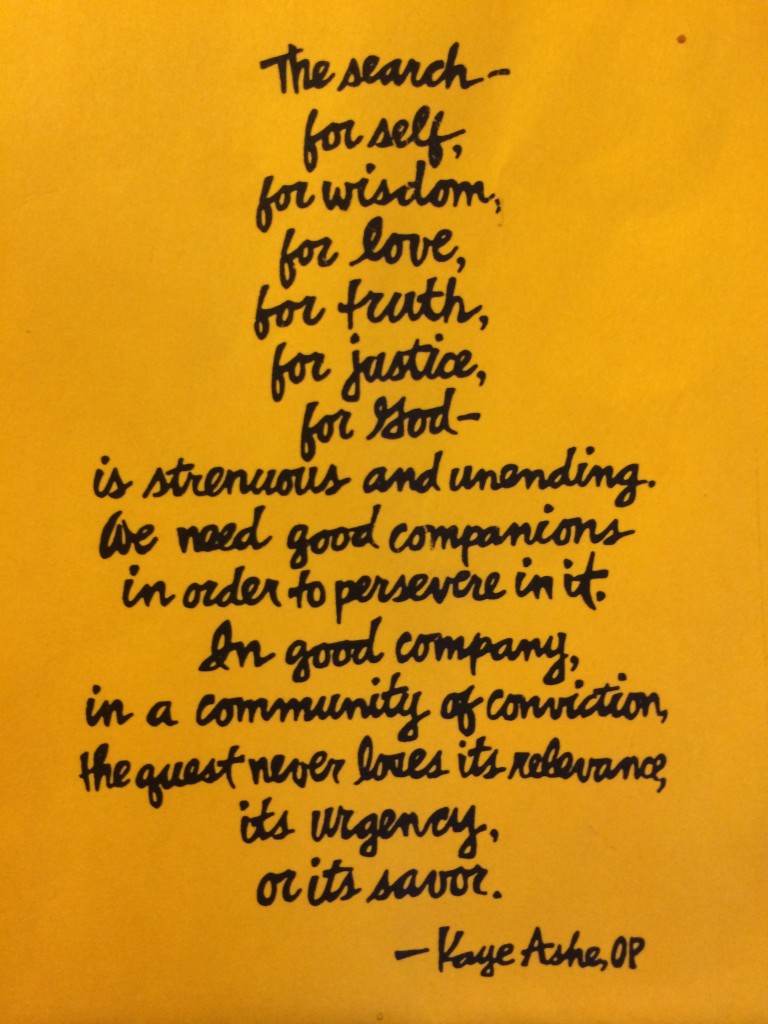 The search –
for self,
for wisdom,
for love,
for truth,
for justice,
for God –
is strenuous and unending.
We need good companions
in order to persevere in it.
In good company,
in a community of conviction,
the quest never loses its relevance,
its urgency,
or its savor.
– Kaye Ashe, OP